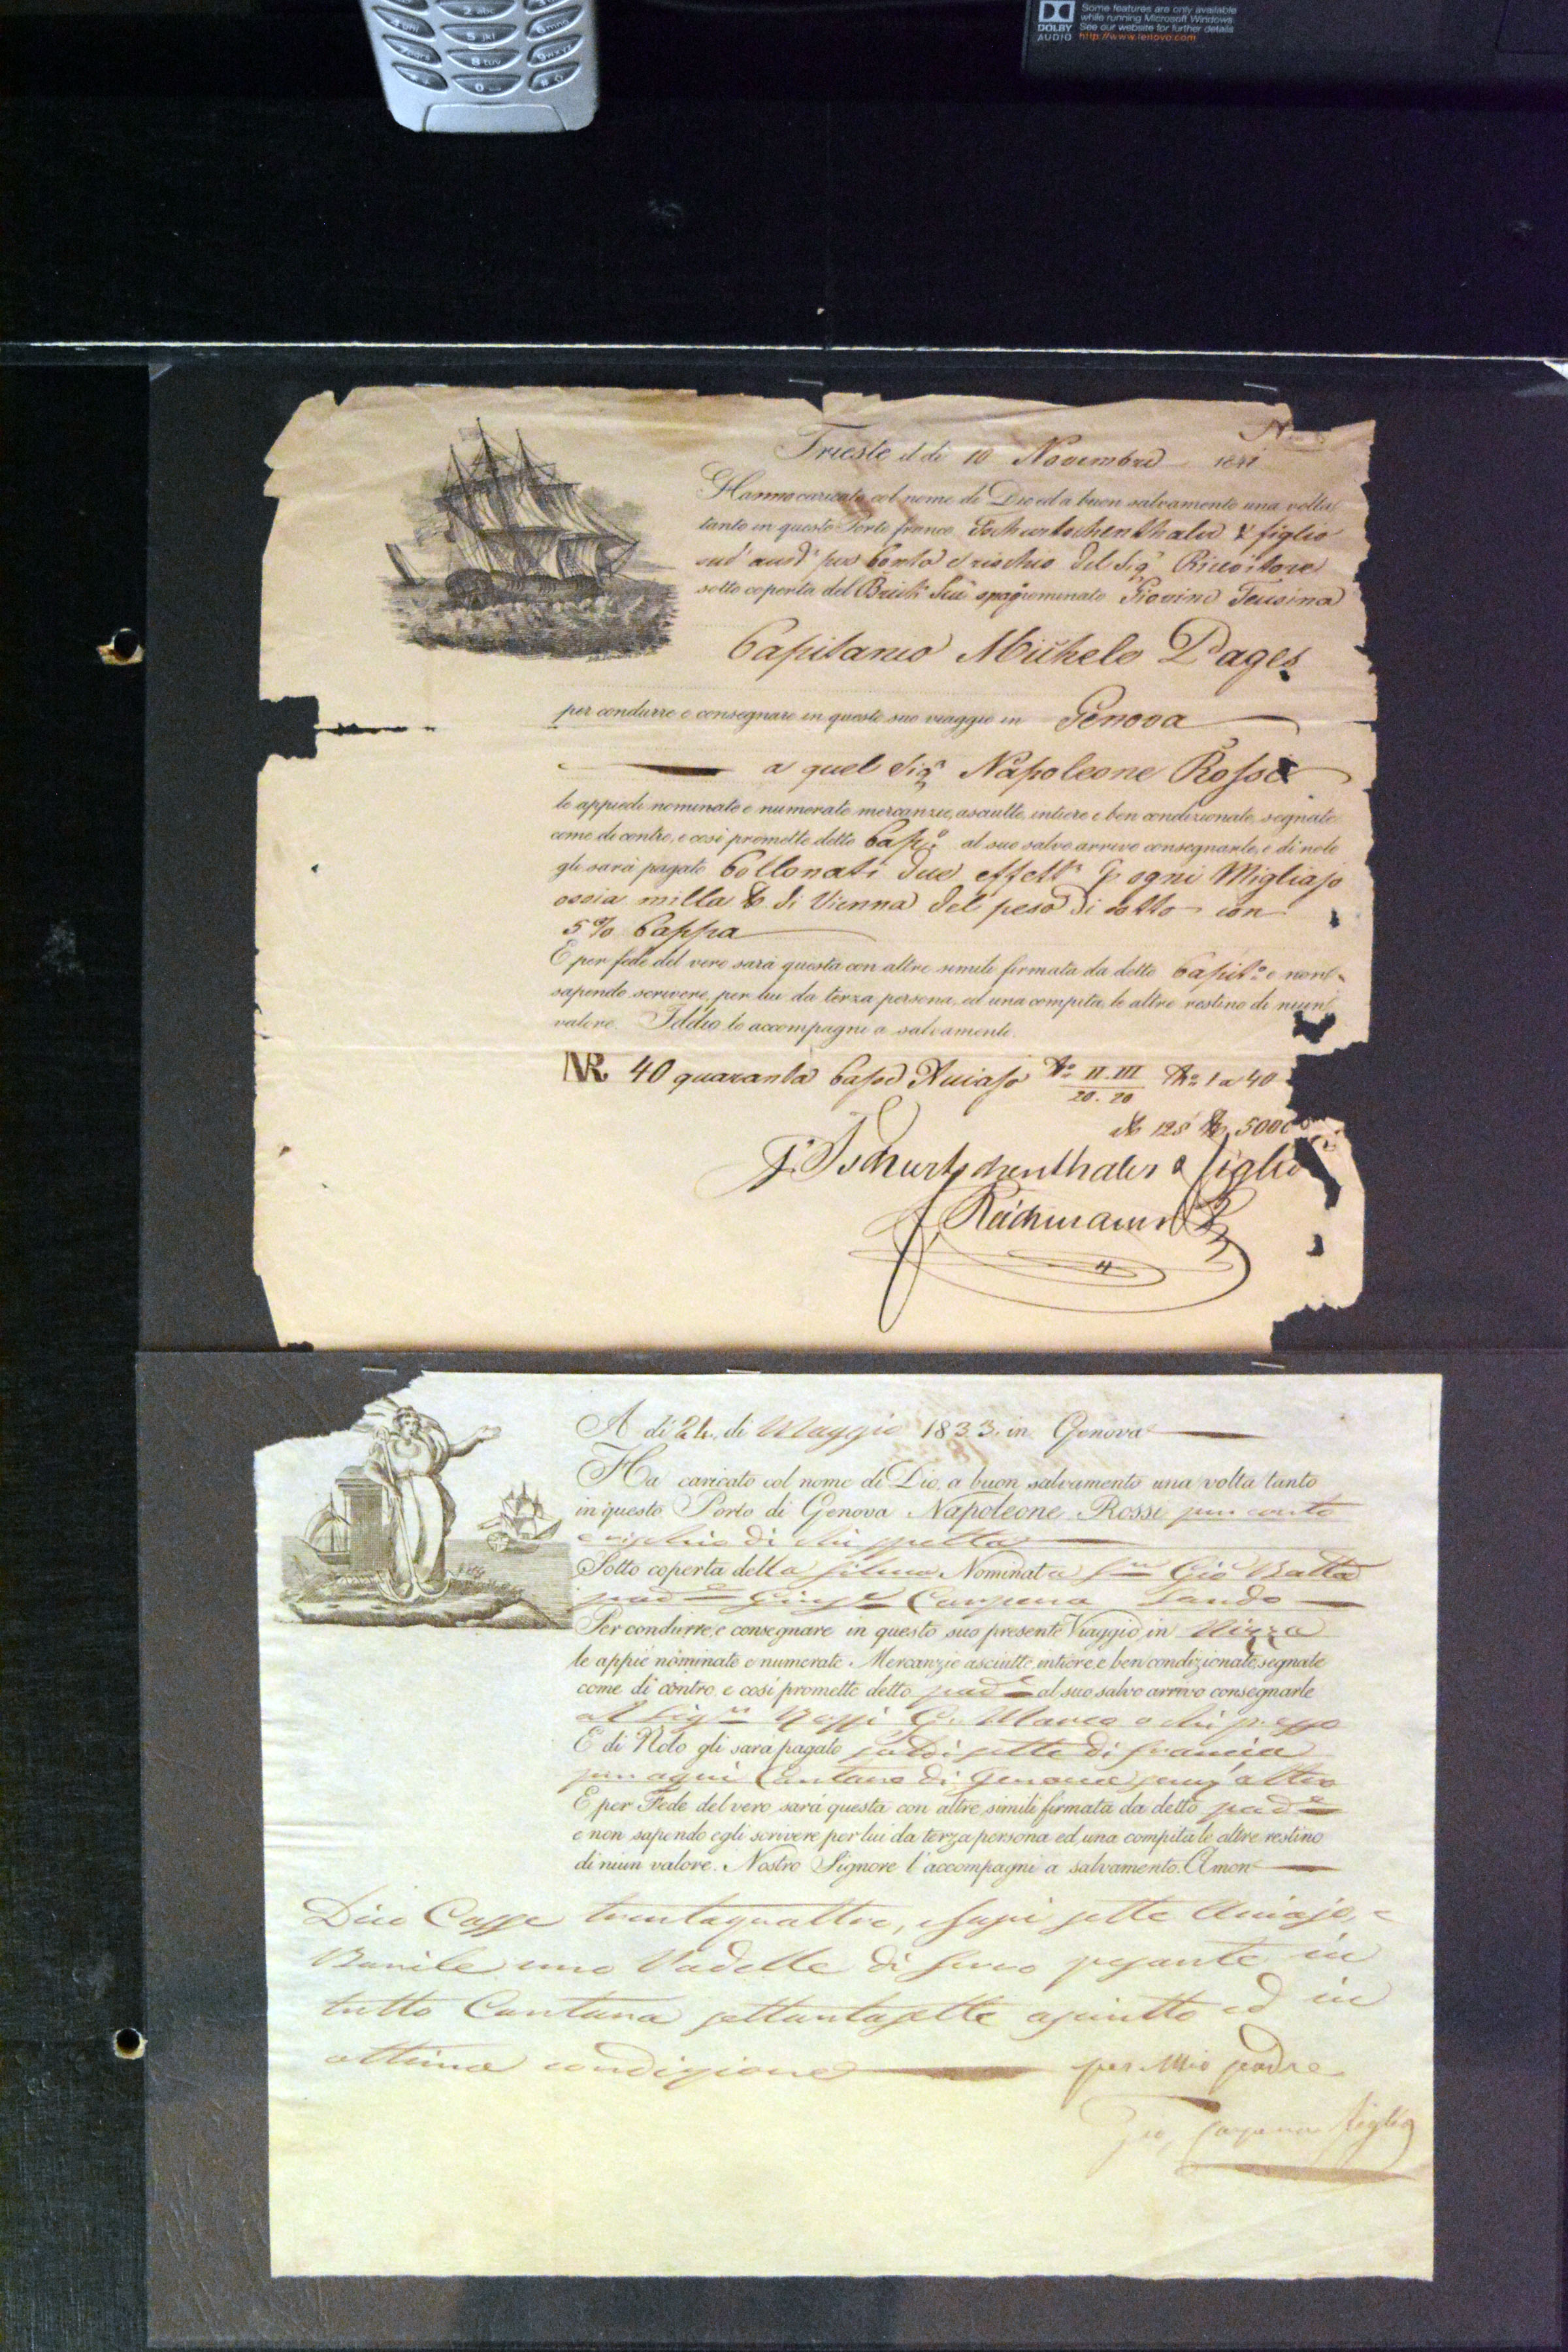 2 abc
5 jkl
6 mno
8 tuv
9 wxyz
0
DOLBY
AUDIO
Some features are only available
while running Microsoft Windows
See our website for further details
http://www.lenovo.com
Trieste il dì 10 Novembre 1841
Hanno caricato col nome di Dio ed a buon salvamento una volta
tanto in questo Porto franco Tschurtschenthaler & figlio
per Conto e rischio del Sigr Ricevitore
sotto coperta del Brick nominato Giovine
Capitanio Michele Pages
per condurre e consegnare in questo suo viaggio in Genova
a quel Sigr Napoleone Rossi
le appiedi nominate e numerate mercanzie, asciutte, intiere e ben condizionate, segnate
come di contro, e così promette detto Capo. al suo salvo arrivo consegnarle, e di nolo
gli sarà pagato Collonati due effett. p ogni Migliajo
ossia mille di Vienna del peso di sotto con
5% Cappa
E per fede del vero sarà questa con altre simile firmata da detto Capit.o e non
sapendo scrivere, per lui da terza persona, ed una compita, le altre restino di niun
valore. Iddio lo accompagni a salvamento.
NR 40 quaranta Casse Acciajo No II. III No 1 a 40
20. 20
125 5000
Tschurtschenthaler & figlio
A di 24, di Maggio 1833. in Genova
Ha caricato col nome di Dio, a buon salvamento una volta tanto
in questo Porto di Genova Napoleone Rossi per conto
e rischio di chi spetta
Sotto coperta della filuca Nominata Gio Batta
Carpena
Per condurre, e consegnare in questo suo presente Viaggio, in Nizza
le appiè nominate e numerate Mercanzie asciutte, intiere, e ben condizionate, segnate
come di contro, e così promette detto pade al suo salvo arrivo consegnarle
al Sigre
E di Nolo gli sarà pagato soldi sette di francia
per ogni Cantaro di Genova senz'altro
E per Fede del vero sarà questa con altre simili firmata da detto pade
e non sapendo egli scrivere per lui da terza persona ed, una compita le altre restino
di niun valore. Nostro Signore l'accompagni a salvamento. Amen
Dico Casse trentaquattro, e sette Acciajo, e
Barile uno Padelle di ferro pesante in
tutto Cantara settantasette asciutto ed in
ottima condizione per Mio padre
Gio, Carpena figlio